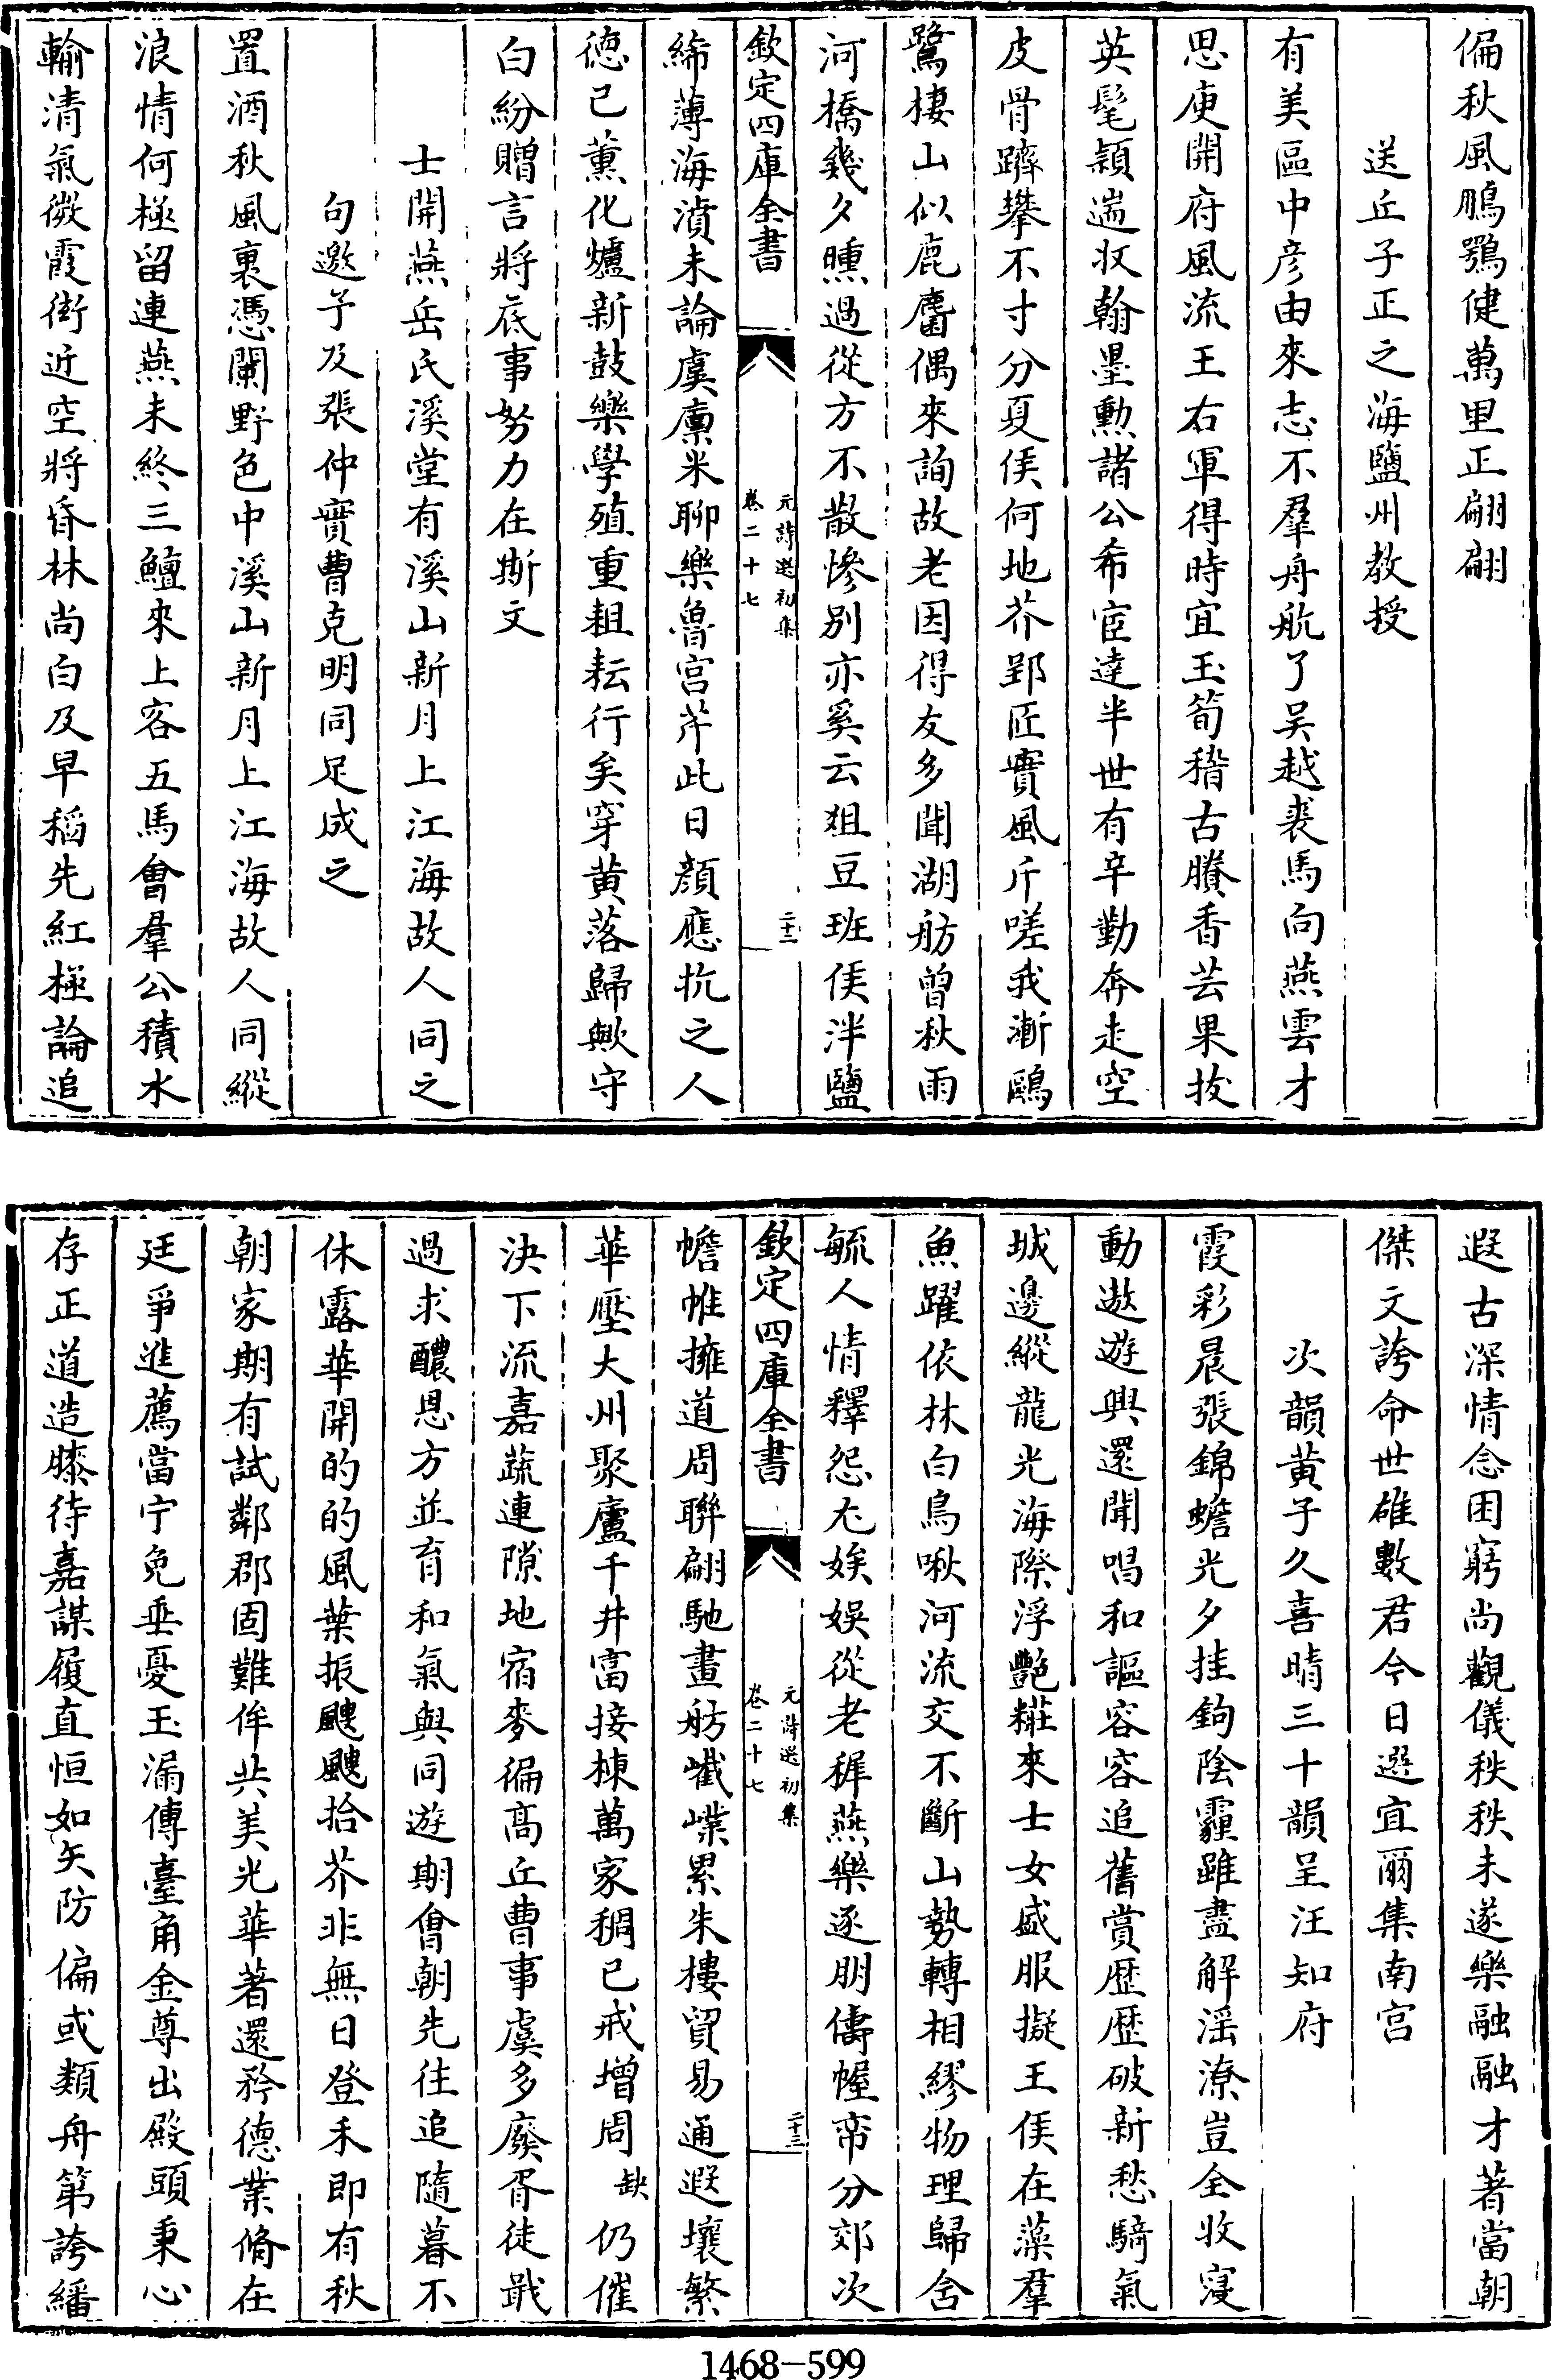 偏秋風鵰鶚健萬里正翩翩
送丘子正之海鹽州教授
有美區中彦由來志不羣舟航了吴越裘馬向燕雲才
思庾開府風流王右軍得時宜玉筍稽古賸香芸果拔
英髦穎遄收翰墨勲諸公希宦達半世有辛勤奔走空
皮骨躋攀不寸分夏侯何地芥郢匠實風斤嗟我漸鷗
鷺棲山似鹿麕偶來詢故老因得友多聞湖舫曽秋雨
河橋幾夕曛過從方不散慘别亦奚云俎豆班侯泮鹽
欽定四庫全書
元詩選初集
卷二十七
二十二
締薄海濆未論虞廪米聊樂魯宫芹此日顔應抗之人
德已薰化爐新鼓樂學殖重耡耘行矣穿黄落歸歟守
白紛贈言將底事努力在斯文
士開燕岳氏溪堂有溪山新月上江海故人同之
句邀予及張仲實曹克明同足成之
置酒秋風裏憑闌野色中溪山新月上江海故人同縱
浪情何極留連燕未終三鱣來上客五馬會羣公積水
輸清氣微霞街近空將昏林尚白及早稻先紅極論追
遐古深情念困窮尚觀儀秩秩未遂樂融融才著當朝
傑文誇命世雄數君今日選宜爾集南宫
次韻黄子久喜晴三十韻呈汪知府
霞彩晨張錦蟾光夕挂鉤陰霾雖盡解滛潦豈全收寖
動遨遊興還聞唱和謳容容追舊賞歴歴破新愁騎氣
城邊縱龍光海際浮艶糚來士女盛服擬王侯在藻羣
魚躍依林白鳥啾河流交不斷山勢轉相繆物理歸含
毓人情釋怨尤娭娯從老稺燕樂逐朋儔幄帟分郊次
欽定四庫全書
元詩選初集
卷二十七
二十三
幨帷擁道周聯翩馳畫舫嶻嶫累朱樓貿易通遐壤繁
華壓大州聚廬千井富接棟萬家稠已戒增周缺仍催
決下流嘉蔬連隙地宿麥徧高丘曹事虞多廢胥徒戢
過求醲恩方並育和氣與同遊期會朝先往追隨暮不
休露華開的的風葉振颼颼拾芥非無日登禾即有秋
朝家期有試鄰郡固難侔共美光華著還矜德業脩在
廷爭進薦當宁免垂憂玉漏傳臺角金尊出殿頭秉心
存正道造膝待嘉謀履直恒如矢防偏或類舟第誇繙
1468-599